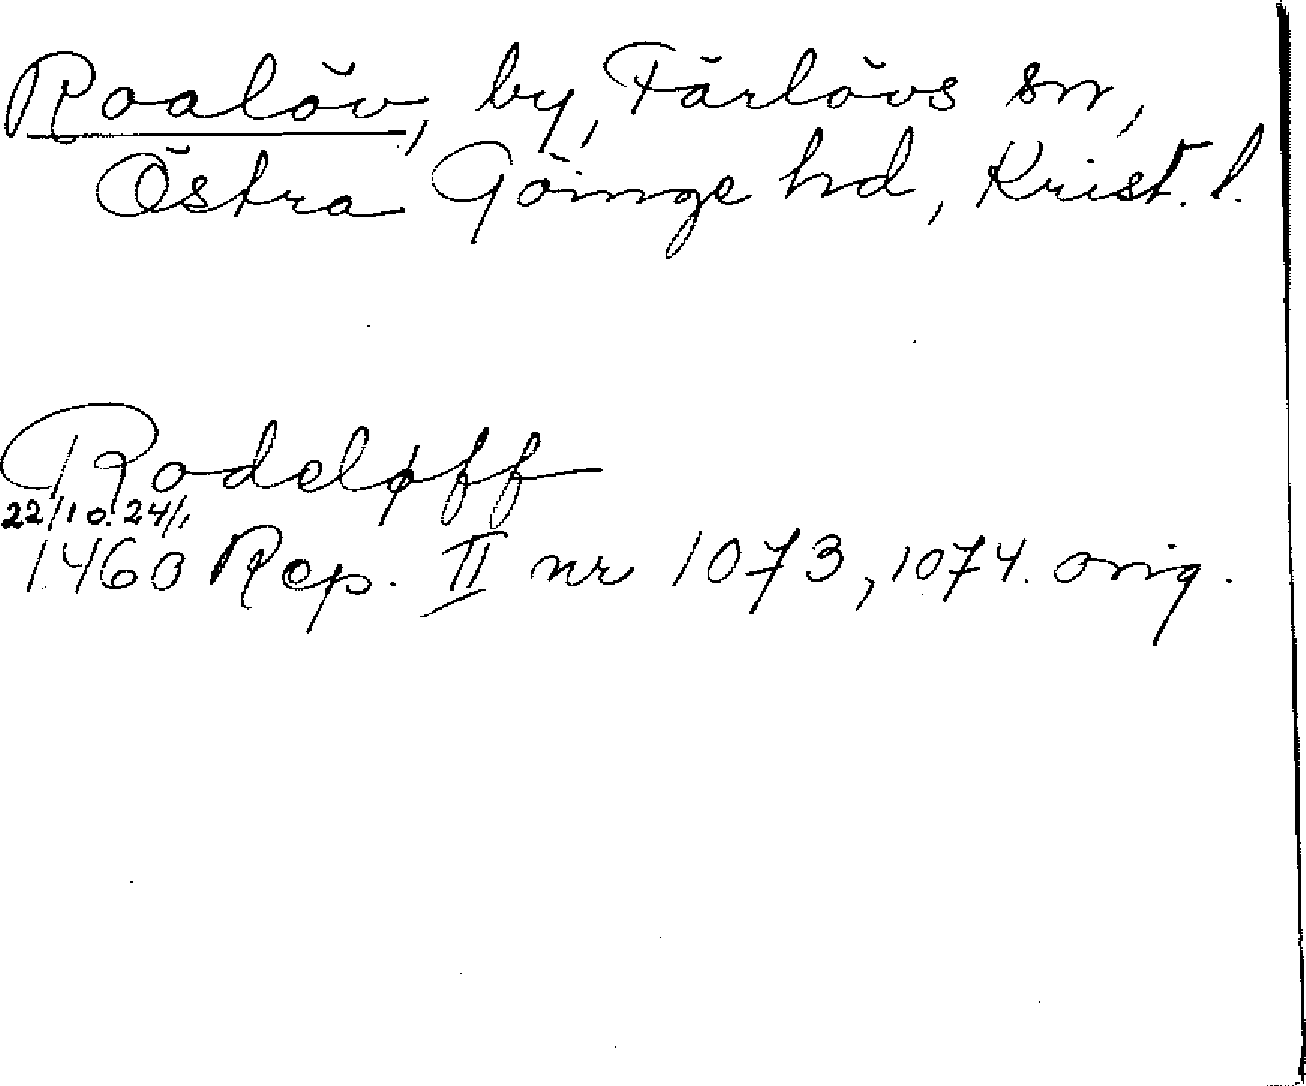 Roalöv, by, Färlövs sn,
Östra Göinge hd, Krist. l.
Rodeløff
22/10. 24/1
1460 Rep. II nr 1073, 1074. orig.